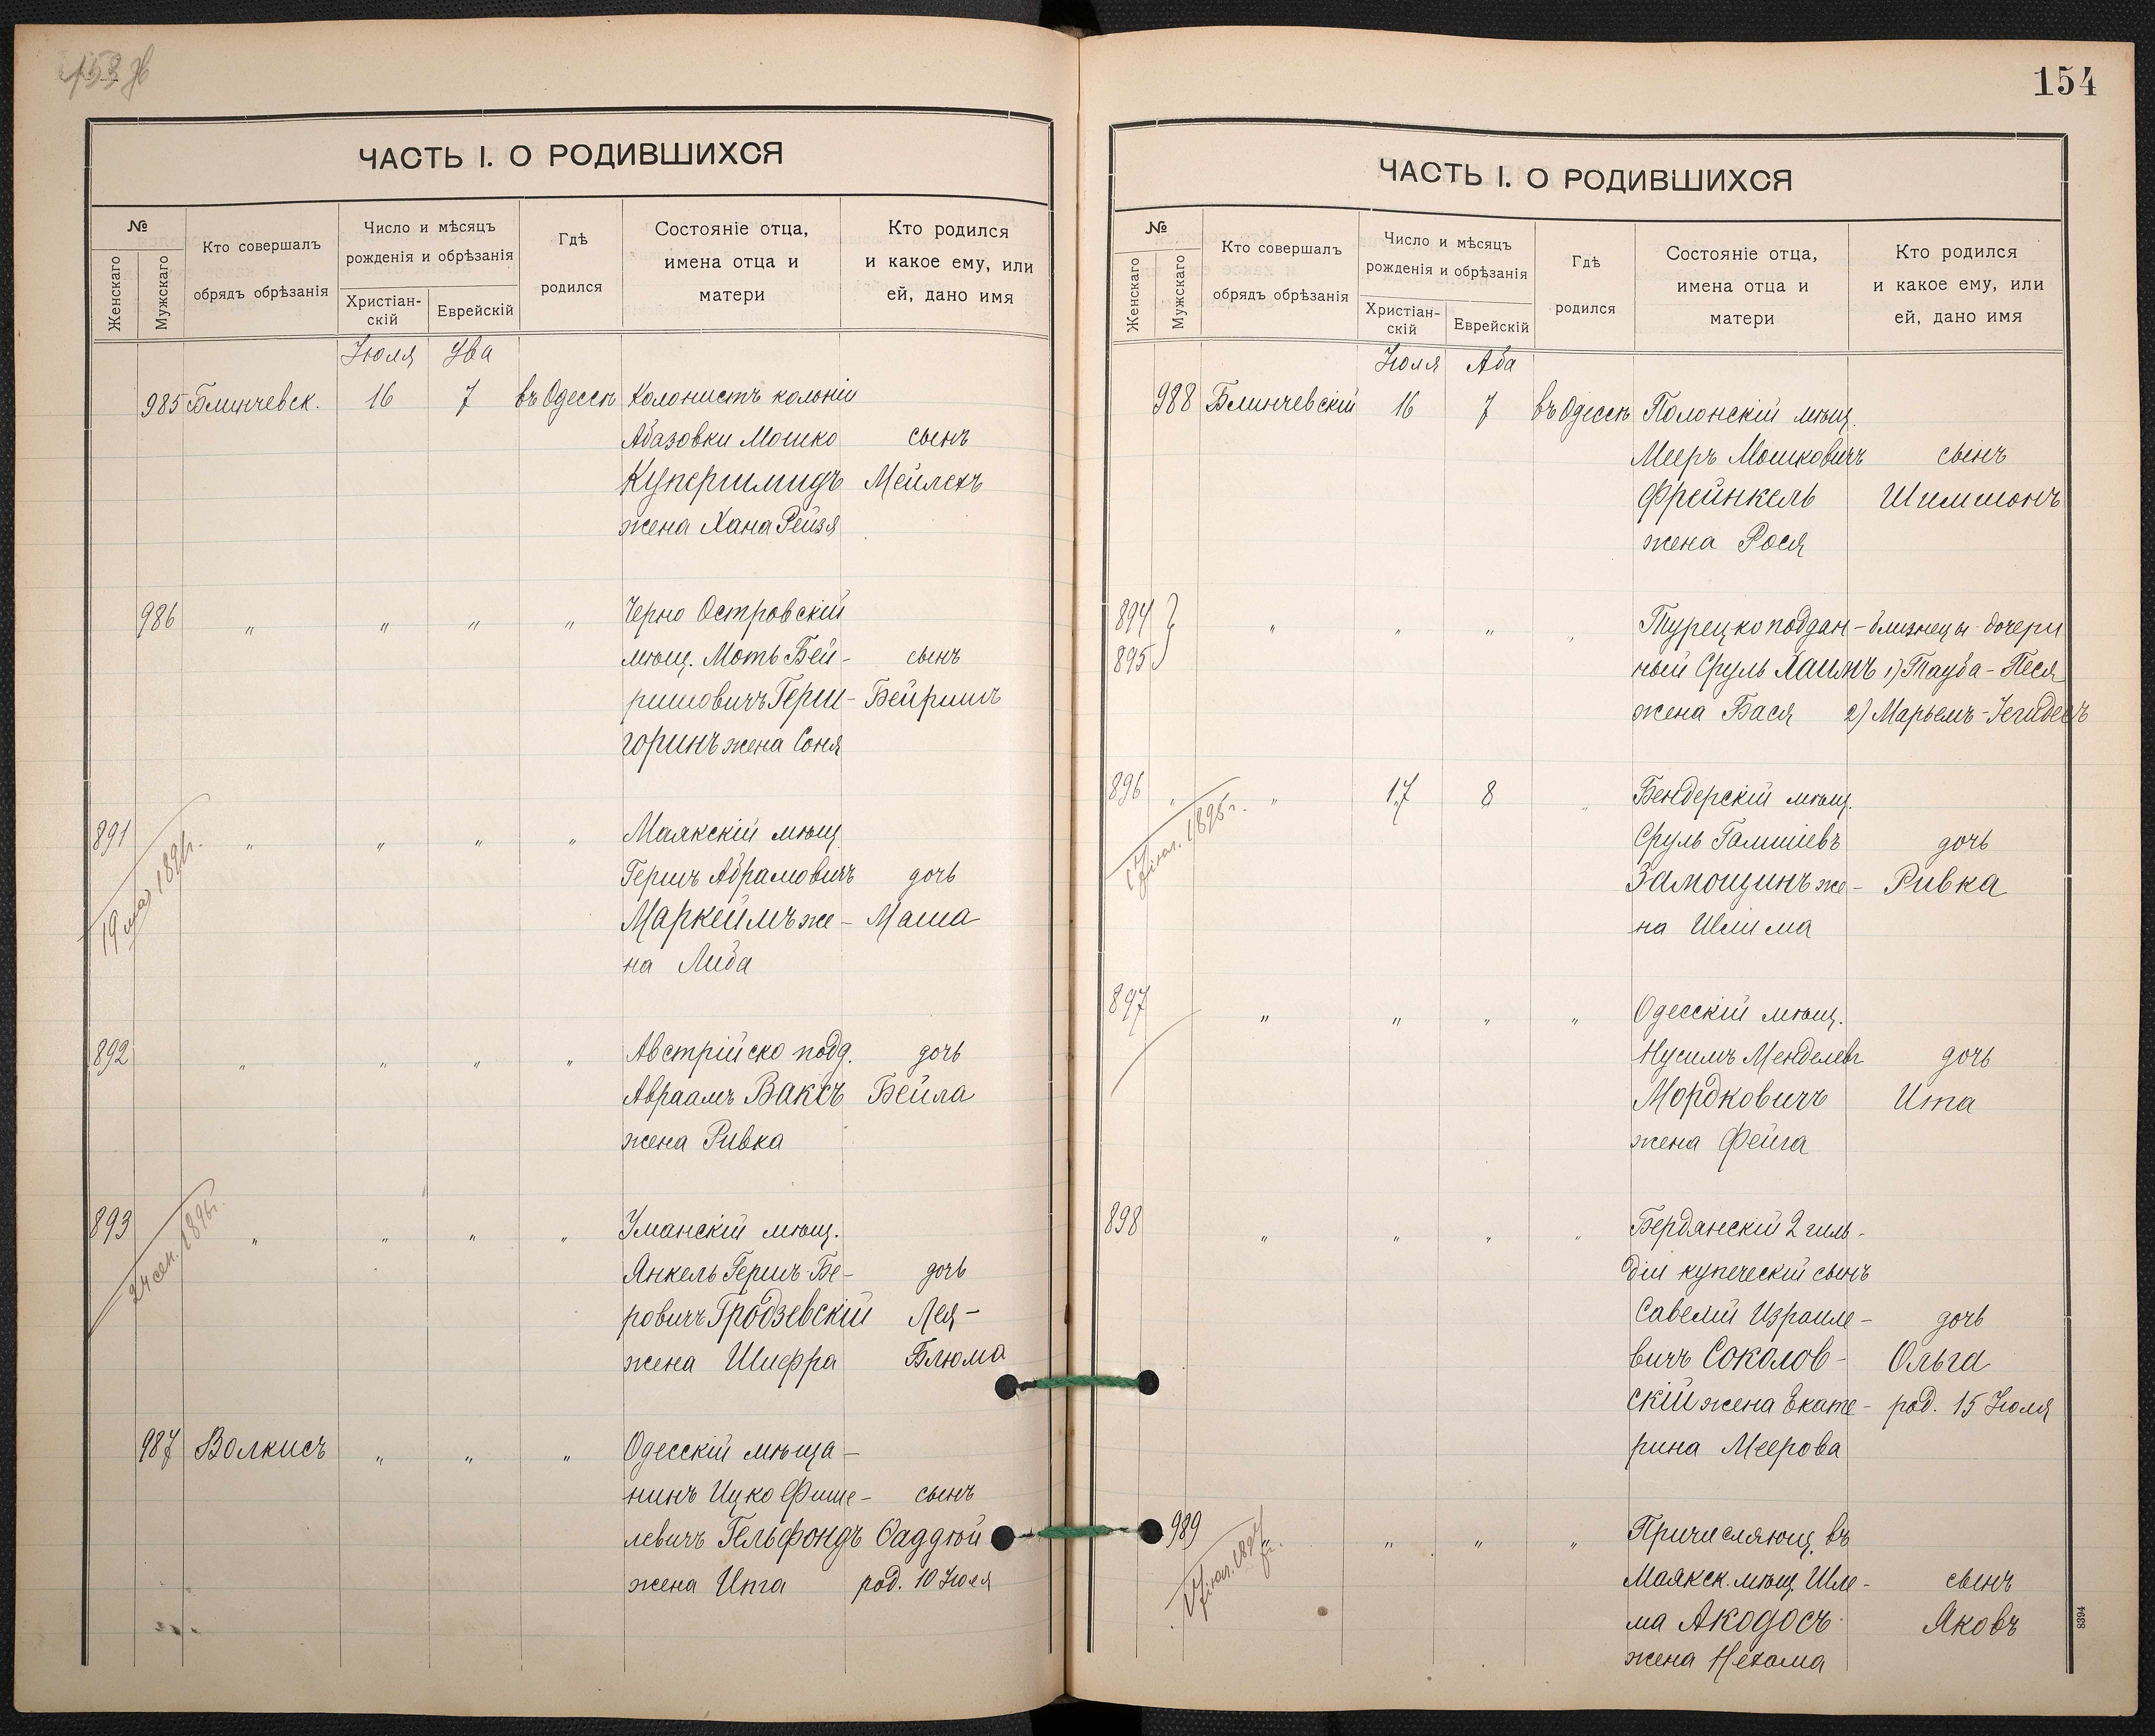 ЧАСТЬ I. О РОДИВШИХСЯ
№
Женскаго
Мужскаго
Кто совершалъ
обрядъ обрѣзанія
Число и мѣсяцъ
рожденія и обрѣзанія
Христіан-
скій
Еврейскій
Гдѣ
родился
Состояніе отца,
имена отца и
матери
Кто родился
и какое ему, или
ей, дано имя
Іюля
985 Блинчевск. 16 7 въ Одессѣ Колонистъ колоніи
Абазовки Мошко сынъ
Купершмидъ Мейлехъ
жена Хана Рейзя
986 " " " " Черно Островскій
мѣщ. Моть Бей- сынъ
ришовичъ Герш- Бейришъ
горинъ жена Соня
891 " " " " Маякскій мѣщ.
Гершъ Абрамовичъ дочь
Маркеймъ же- Маша
на Либа
892 " " " " Австрійско подд. дочь
Авраамъ Ваксъ Бейла
жена Ривка
24 сен. 1896г.
893 " " " " Уманскій мѣщ.
Янкель Гершъ Бе- дочь
ровичъ Гродзевскій Лея-
жена Шифра Блюма
987 Волкисъ " " " Одесскій мѣща-
нинъ Ицко Фише- сынъ
левичъ Гельфондъ Саддюй
жена Ита род. 10 Іюля
154
ЧАСТЬ I. О РОДИВШИХСЯ
№
Женскаго
Мужскаго
Кто совершалъ
обрядъ обрѣзанія
Число и мѣсяцъ
рожденія и обрѣзанія
Христіан-
скій
Еврейскій
Гдѣ
родился
Состояніе отца,
имена отца и
матери
Кто родился
и какое ему, или
ей, дано имя
Іюля Аба
988 Блинчевскій 16 7 въ Одессѣ Полонскій мѣщ.
Мееръ Мошковичъ сынъ
Френкель Шимшонъ
жена Рося
894 " " " " Турецко поддан- близнецы дочери
895 ный Сруль Хаимъ 1) Тауба-Песя
жена Бася 2) Марьемъ-Іегидесъ
896 " " 17 8 " Бендерскій мѣщ.
Сруль Галишевъ дочь
Замощинъ же- Ривка
на Шлима
897 " " " " Одесскій мѣщ.
Нусимъ Менделевъ дочь
Мордковичъ Ита
жена Фейга
898 " " " " Бердянскій 2 гиль-
діи купеческій сынъ
Савелій Израиле- дочь
вичъ Соколов- Ольга
скій жена Екате- род. 15 Іюля
рина Меерова
989 " " " " Причисляющ. въ
Маякск. мѣщ. Шле- сынъ
ма Акодосъ Яковъ
жена Нехама
8394